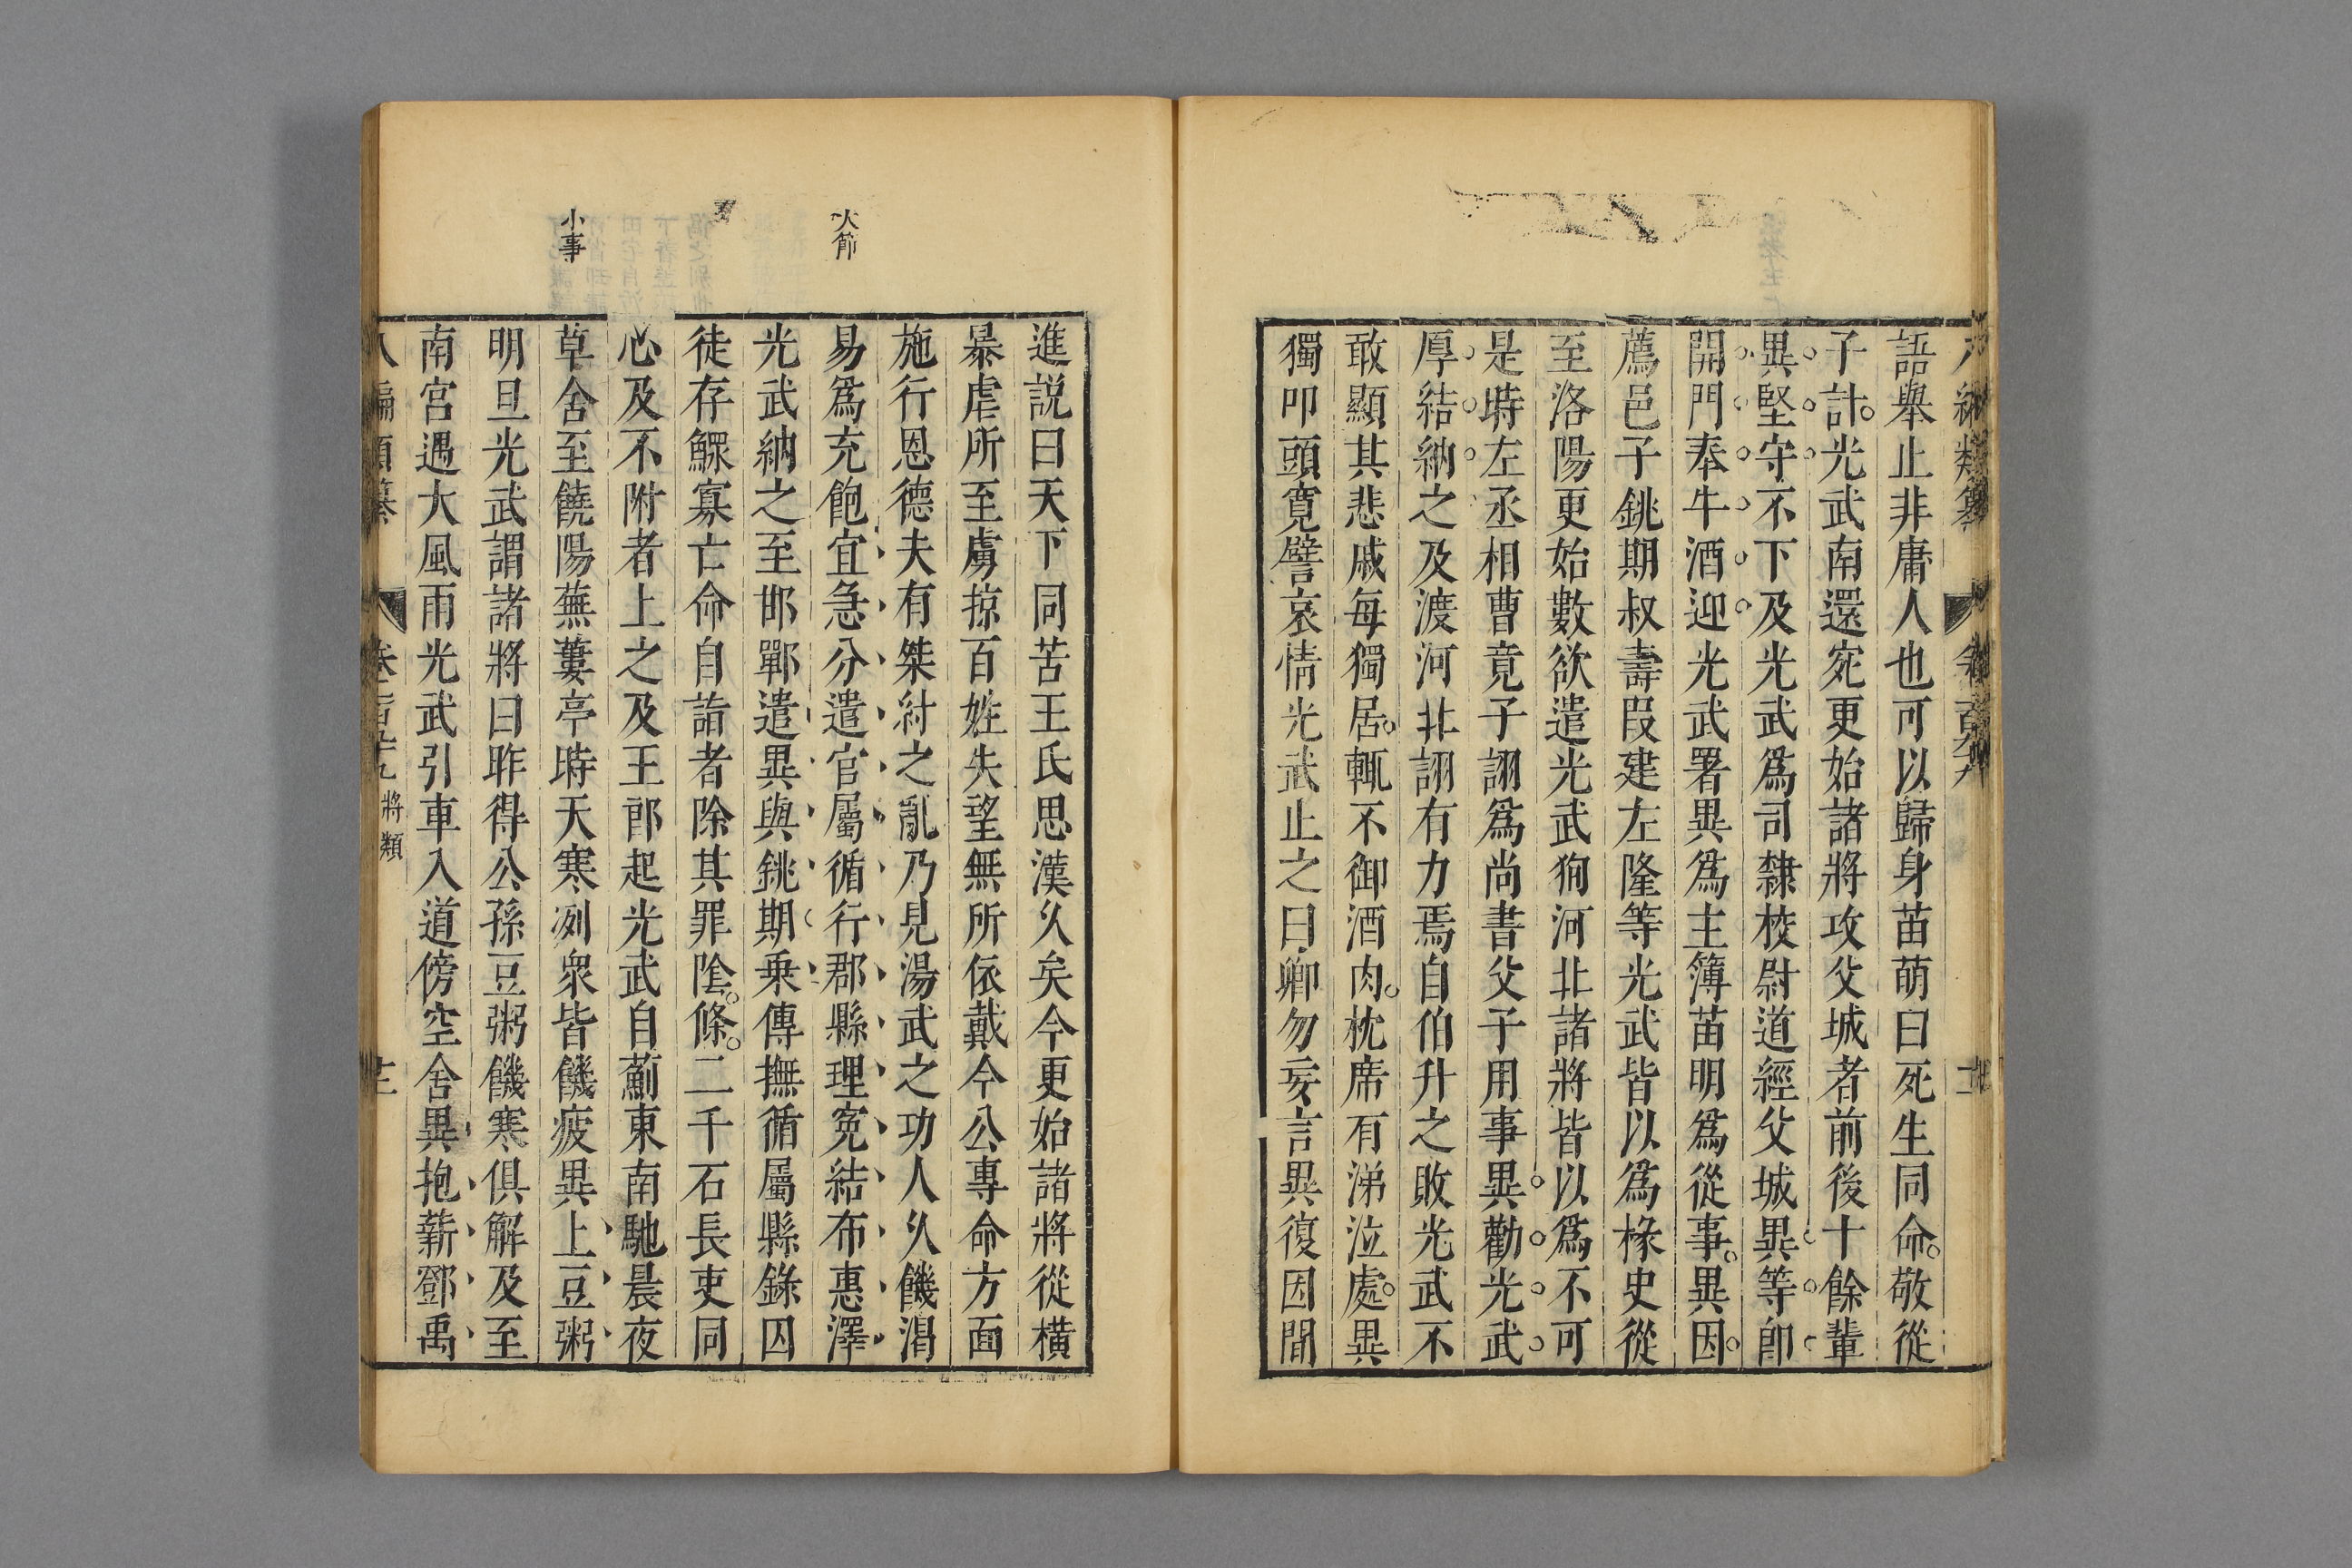 語舉止非庸人也可以歸身苗萌曰死生同命敬從
子計光武南還宛更始諸將攻父城者前後十餘輩
異堅守不下及光武爲司隸校尉道經父城異等卽
開門奉牛酒迎光武署異爲主簿苗明爲從事異因
薦邑子銚期叔壽段建左隆等光武皆以爲掾史從
至洛陽更始數欲遣光武狥河北諸將皆以爲不可
是時左丞相曹竟子詡爲尚書父子用事異勸光武
厚結納之及渡河北詡有力焉自伯升之敗光武不
敢顯其悲戚每獨居輒不御酒肉枕席有涕泣處異
獨叩頭寬譬哀情光武止之曰卿勿妄言異復因間
大節
小事
進說曰天下同苦王氏思漢久矣今更始諸將從橫
暴虐所至虜掠百姓失望無所依戴今公專命方面
施行恩德夫有桀紂之亂乃見湯武之功人久饑渴
易爲充飽宜急分遣官屬循行郡縣理寃結布惠澤
光武納之至邯鄲遣異與銚期乗傳撫循屬縣錄囚
徒存鰥寡亡命自詣者除其罪陰條二千石長吏同
心及不附者上之及王郎起光武自薊東南馳晨夜
草舍至饒陽蕪蔞亭時天寒冽衆皆饑疲異上豆粥
明旦光武謂諸將曰昨得公孫豆粥饑寒俱解及至
南宮遇大風雨光武引車入道傍空舍異抱薪鄧禹
八編類纂 將類